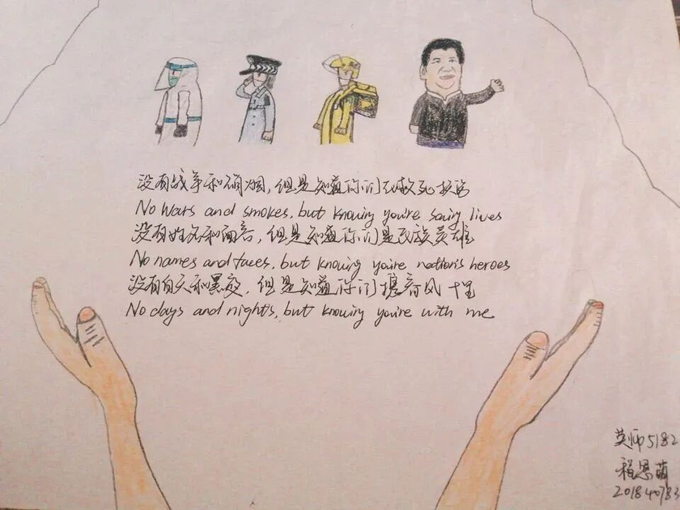 没有战争和硝烟，但是知道你们在救死扶伤
No wars and smokes, but knowing you're saving lives
没有姓名和面容，但是知道你们是民族英雄
No names and faces, but knowing you're nation's heroes
没有白天和黑夜，但是知道你们携春风十里
No days and nights, but knowing you're with me
英师5182
程思萌
201840783